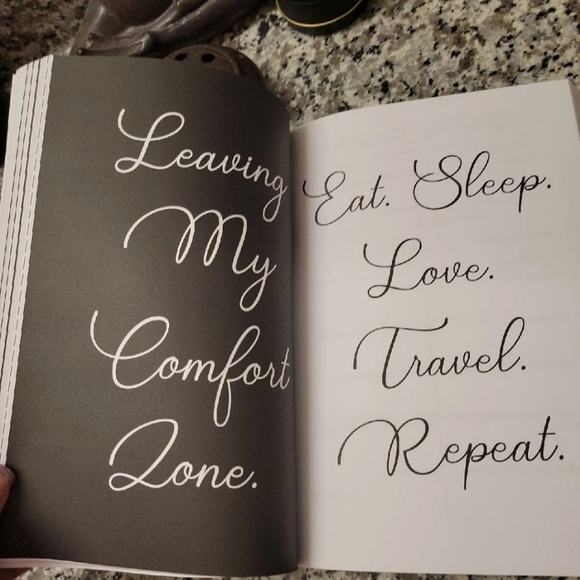 Leaving
My
Comfort
Zone.
Eat. Sleep.
Love.
Travel.
Repeat.